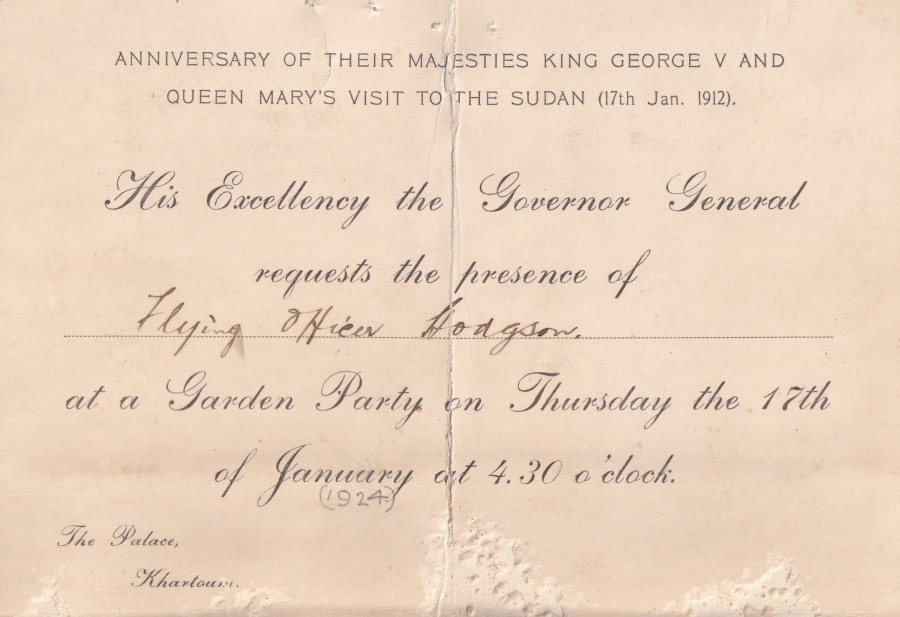 ANNIVERSARY OF THEIR MAJESTIES KING GEORGE V AND
QUEEN MARY'S VISIT TO THE SUDAN (17th Jan. 1912).
His Excellency the Governor General
requests the presence of
Flying Officer Hodgson.
at a Garden Party on Thursday the 17th
of January at 4.30 o'clock.
(1924)
The Palace,
Khartoum.